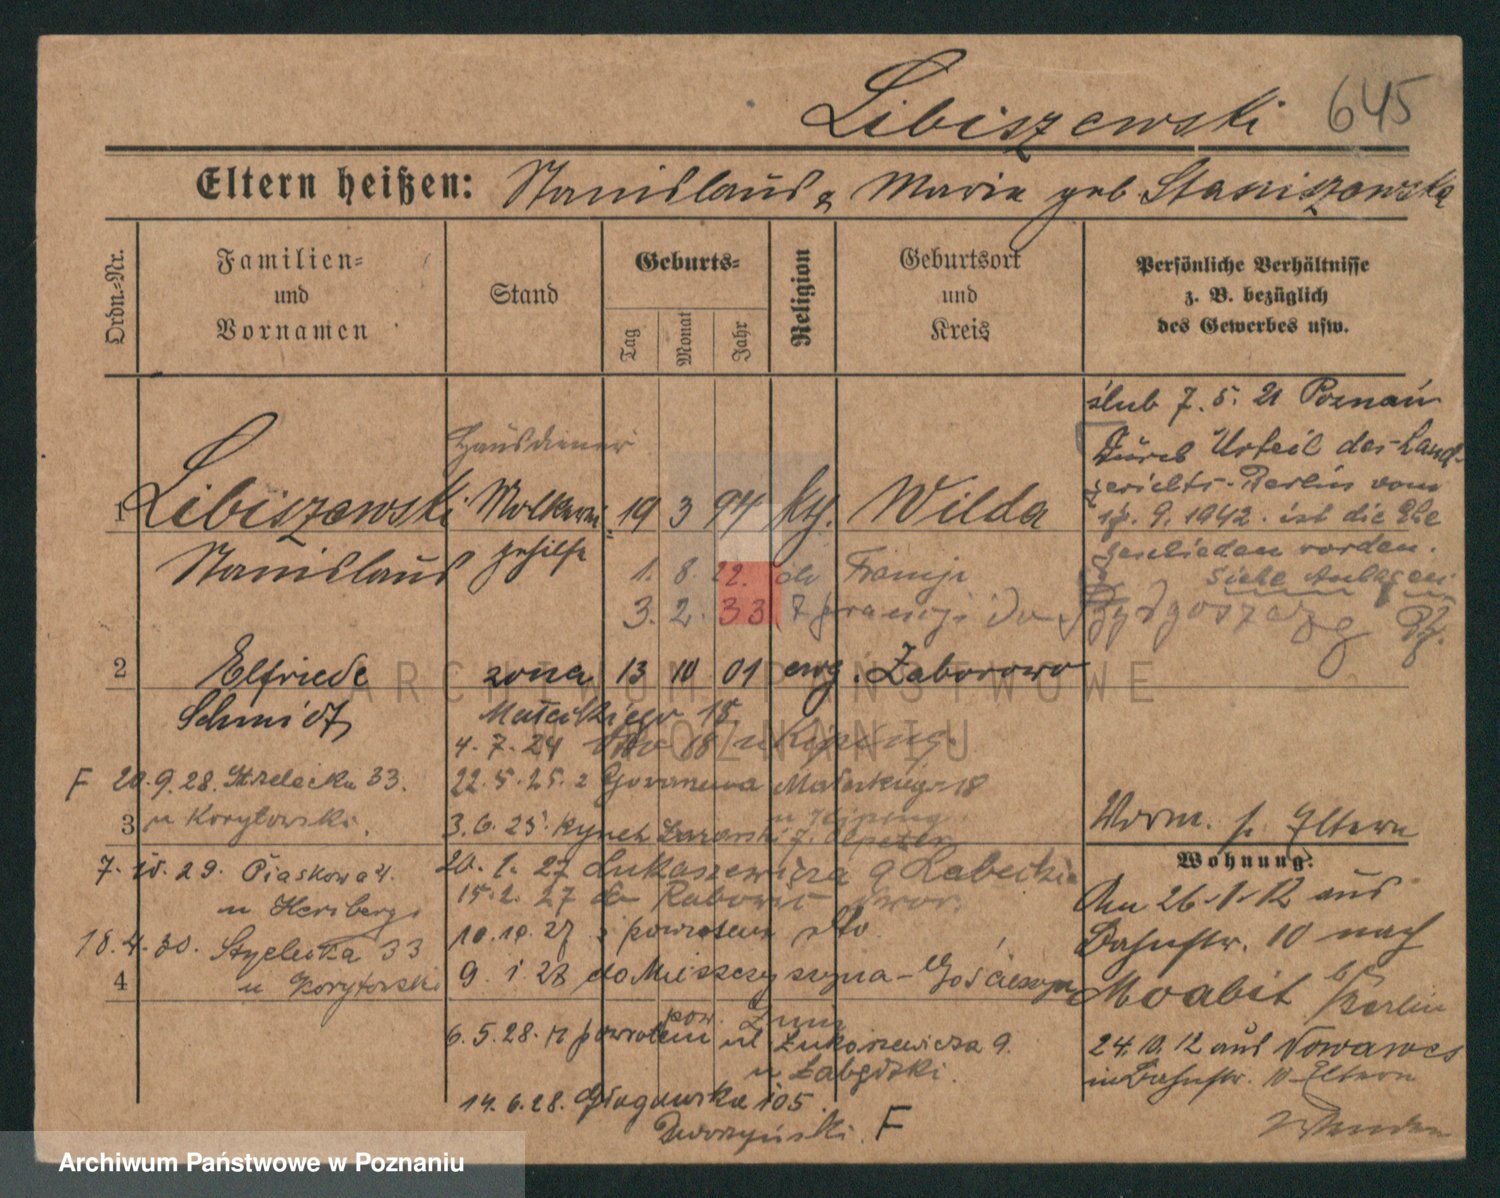 Libiszewski 645
Eltern heißen: Stanislaus & Maria geb Staniszewska
Ordn.-Nr.
Familien-
und
Vornamen
Stand
Geburts-
Tag
Monat
Jahr
Religion
Geburtsort
und
Kreis
Persönliche Verhältnisse
z. B. bezüglich
des Gewerbes usw.
ślub 7. 5. 21 Poznań
Durch Urteil des Land-
gerichts Berlin vom
9. 1942. ist die Ehe
geschieden worden.
Siehe Anlagen
Hausdiener
1 Libiszewski Molkerei- 19 3 94 kth. Wilda
Stanislaus gehilfe
1. 8. 22. do Francji
3. 2. 33 z Francji do Bydgoszczy
2 Elfriede żona 13 10 01 ewg. Zaborowo
Schmidt
Matejkiego 18.
4. 7. 24 dto 18 u Kipping.
F 20. 9. 28. Strzelecka 33.
u Korytowski.
22. 5. 25. z Matejkiego 18
u Kipping
3
3. 6. 25. Rynek Łazarski 7.
7. 15. 29. Piaskowa 4.
u Herzberg
20. 1. 27 Łukaszewicza 9
15. 2. 27 do
10. 10. 27 z powrotem dto.
18. 4. 30. Strzelecka 33
u Korytowski
4
9. 1 28 do Mieszczyszyna - Gościeszyn
pow. Żnin
6. 5. 28. z powrotem ul Łukaszewicza 9.
u
14. 6. 28. Głogowska 105.
Dworzyński. F
Worm. s. Eltern
Wohnung:
Am 26. 1. 12 aus
Bahnstr. 10 nach
Moabit b/Berlin
24. 10. 12 aus Nowawes
in Bahnstr. 10 Eltern
ARCHIWUM PAŃSTWOWE
W POZNANIU
Archiwum Państwowe w Poznaniu